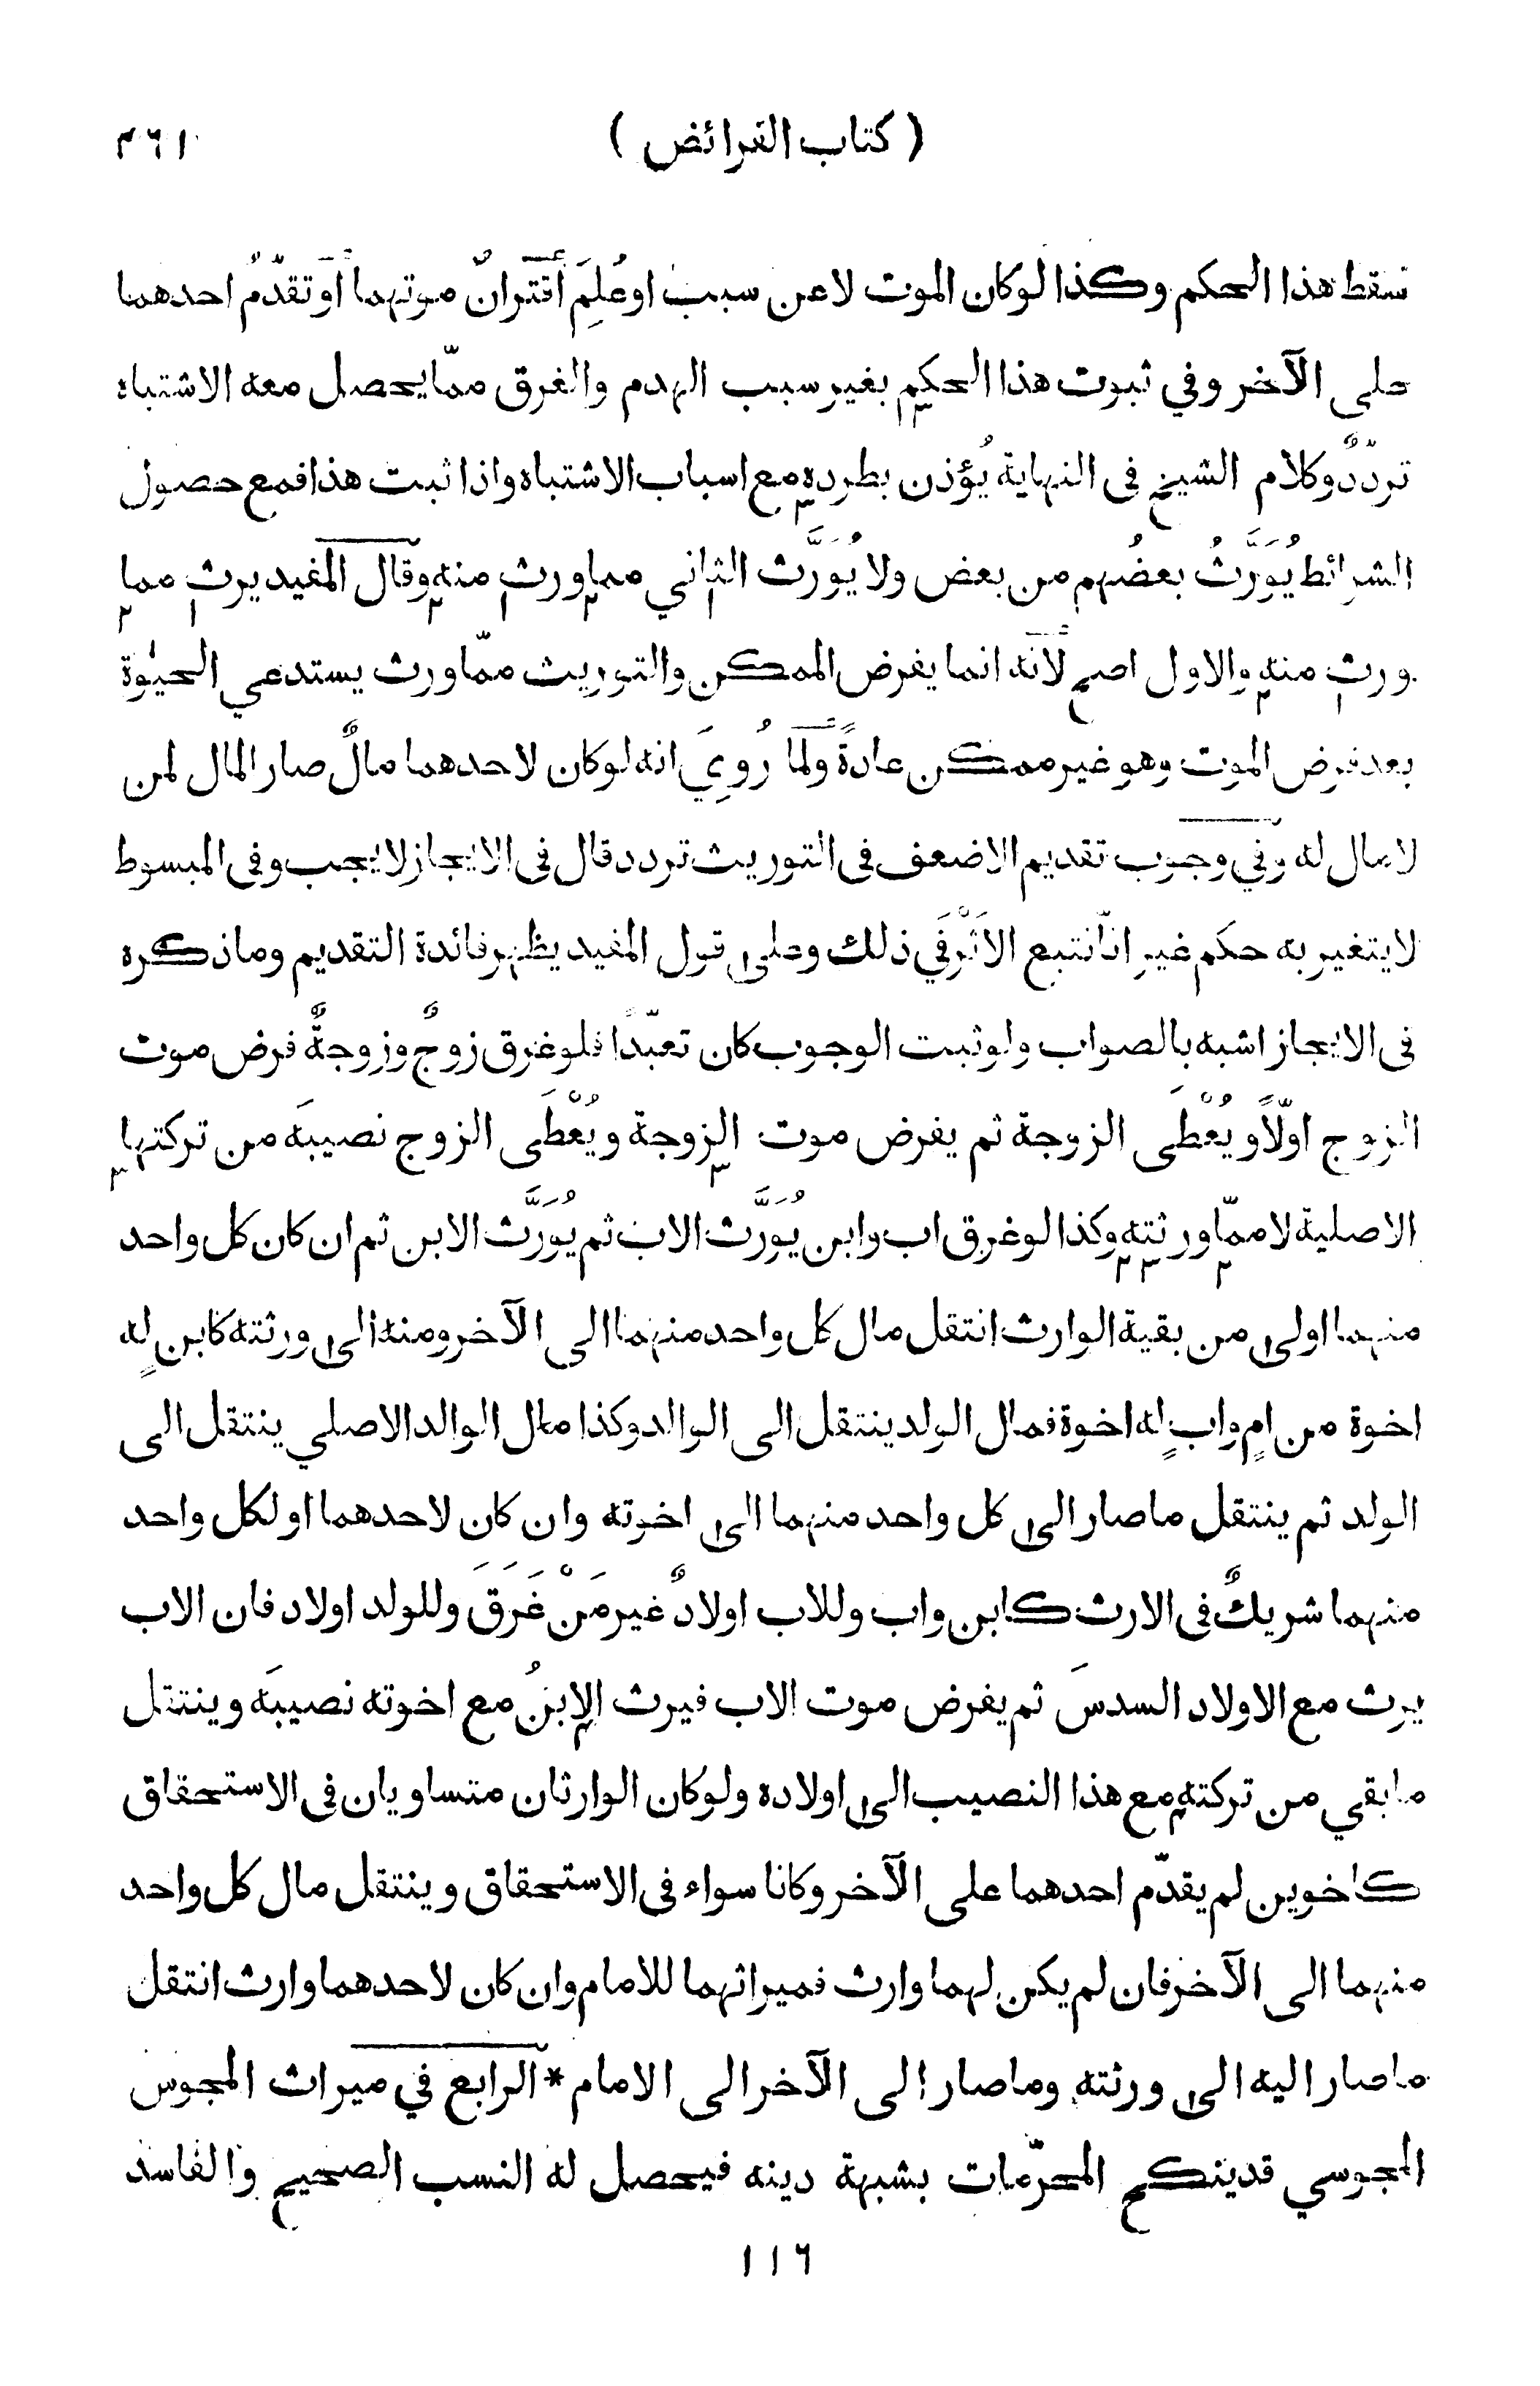 ( كتاب الفرائض ) ٤٦١
سقط هذا الحكم وكذا لوكان الموت لا عن سبب اوعُلِمَ اقترانُ موتهما او تقدّمُ احدهما
على الآخر وفي ثبوت هذا الحكم بغير سبب الهدم والغرق ممّا يحصل معه الاشتباه
تردّدٌ وكلام الشيخ فى النهاية يُؤذن بطرده مع اسباب الاشتباه واذا ثبت هذا فمع حصول
الشرائط يُوَرَّثُ بعضُهم من بعض ولا يُوَرَّث الثاني مما ورث منه وقال المفيد يرث مما
ورث منه والاول اصح لأنّه انما يفرض الممكن والتوريث ممّا ورث يستدعي الحيٰوة
بعد فرض الموت وهو غير ممكن عادةً ولِمَا رُوِيَ انه لوكان لاحدهما مالٌ صار المال لمن
لا مال له وفي وجوب تقديم الاضعف فى التوريث تردد قال فى الايجاز لا يجب وفى المبسوط
لا يتغير به حكم غير انّا نتبع الاَثَرْ في ذلك وعلى قول المفيد يظهر فائدة التقديم وما ذكره
فى الايجاز اشبه بالصواب ولو ثبت الوجوب كان تعبّداً فلو غرق زوجٌ وزوجةٌ فرض موت
الزوج اوّلاً ويُعْطَى الزوجة ثم يفرض موت الزوجة ويُعْطَى الزوج نصيبَه من تركتها
الاصلية لا ممّا ورثته وكذا لو غرق اب وابن يُوَرَّث الاب ثم يُوَرَّث الابن ثم ان كان كل واحد
منهما اولى من بقية الوارث انتقل مال كل واحد منهما الى الآخر ومنه الى ورثته كابن لهِ
اخوة من امٍ وابٍ له اخوة فمال الولد ينتقل الى الوالد وكذا مال الوالد الاصلي ينتقل الى
الولد ثم ينتقل ما صار الى كل واحد منهما الى اخوته وان كان لاحدهما او لكل واحد
منهما شريكٌ فى الارث كابن واب وللاب اولادٌ غير مَنْ غَرَقَ وللولد اولاد فان الاب
يرث مع الاولاد السدسَ ثم يفرض موت الاب فيرث الابنُ مع اخوته نصيبَه وينتقل
ما بقي من تركته مع هذا النصيب الى اولاده ولوكان الوارثان متساويان فى الاستحقاق
كاخوين لم يقدّم احدهما على الآخر وكانا سواء فى الاستحقاق وينتقل مال كل واحد
منهما الى الآخر فان لم يكن لهما وارث فميراثهما للامام وان كان لاحدهما وارث انتقل
ما صار اليه الى ورثته وما صار الى الآخر الى الامام * الرابع في ميراث المجوس
المجوسي قد ينكح المحرّمات بشبهة دينه فيحصل له النسب الصحيح والفاسد
١١٦